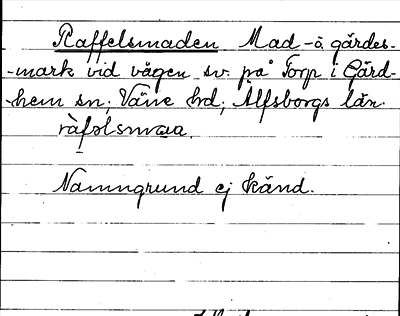 Raffelsmaden Mad å gärdes-
-mark vid vägen sv. på Torp i Gärd-
-hem sn; Väne hd; Älfsborgs län.
ràfəlsmaa.
Namngrund ej känd.